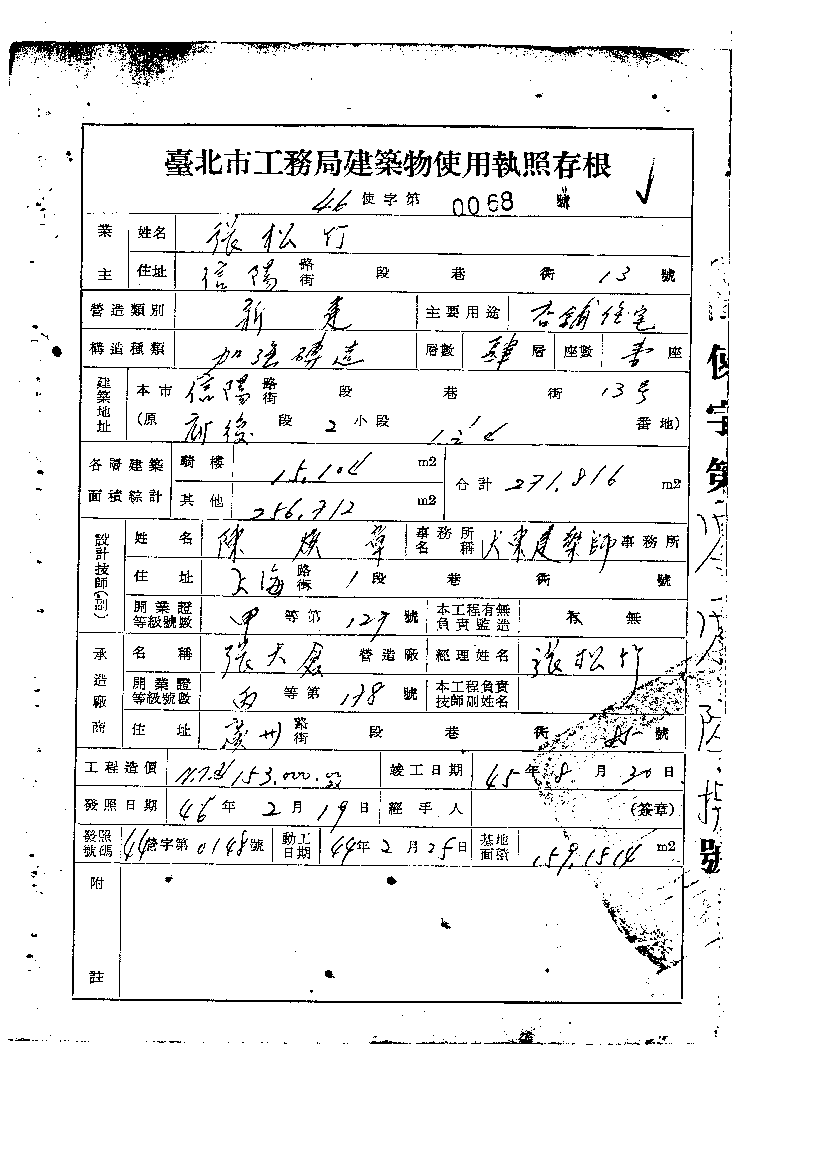 臺北市工務局建築物使用執照存根
46 使字第 0068 號
業主 姓名 張松竹
住址 信陽 路街 段 巷 衖 13 號
營造類別 新建 主要用途 店舖住宅
構造種類 加強磚造 層數 肆 層 座數 壹 座
建築地址 本市 信陽 路街 段 巷 衖 13号
(原 段 2 小段 番地)
各層建築面積綜計 騎樓 15.104 m2 合計 271.816 m2
其他 256.712 m2
設計技師(副) 姓名 陳 章 事務所名稱 大東建築師 事務所
住址 上海 路街 1 段 巷 衖 號
開業證等級號數 甲 等第 127 號 本工程有無負責監造 有 無
承造廠商 名稱 張大 營造廠 經理姓名 張松竹
開業證等級號數 丙 等第 138 號 本工程負責技師副姓名
住址 廣州 路街 段 巷 衖 號
工程造價 N.T.$153,000.00 竣工日期 45 年 8 月 20 日
發照日期 46 年 2 月 19 日 經手人 (簽章)
發照號碼 44 營字第 0148 號 動工日期 44 年 2 月 25 日 基地面積 159.1514 m2
附註
使字第
號